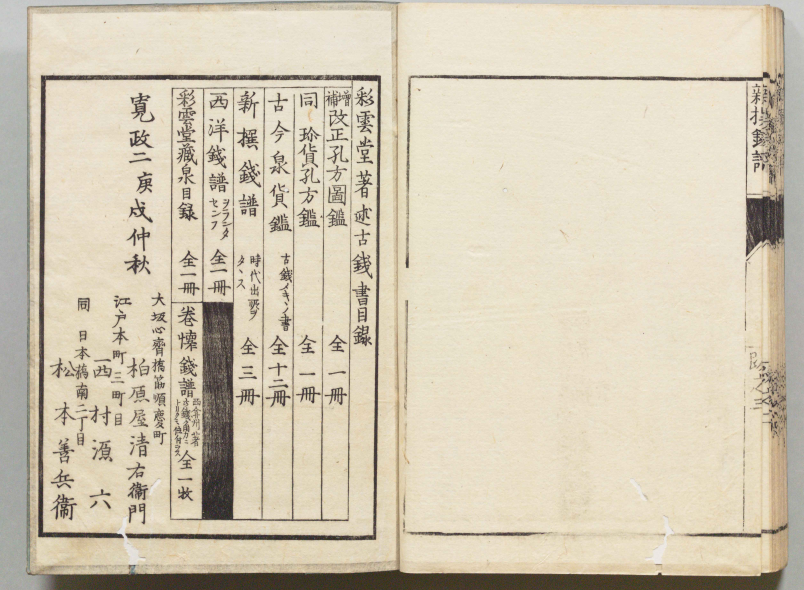 新撰錢譜
彩雲堂著述古錢書目録
増補改正孔方圖鑑 全一冊
同 珍貨孔方鑑 全一冊
古今泉貨鑑 全十二冊
新撰錢譜 時代出所ヲタヽス 全三冊
西洋錢譜 ヲランダセンフ 全一冊
彩雲堂藏泉目録 全一冊
卷懷錢譜 全一枚
寛政二庚戌仲秋
大坂心齋橋筋順慶町
柏原屋清右衛門
江戸本町三町目
西村源六
同日本橋南二丁目
松本善兵衛